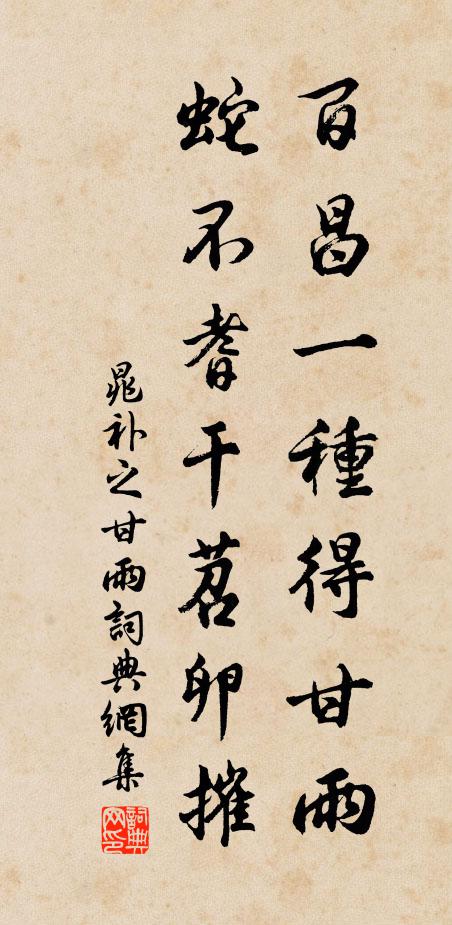 百昌一種得甘雨
蛇不耆干苕卵摧
晁补之甘雨詞典網集
詞典网印